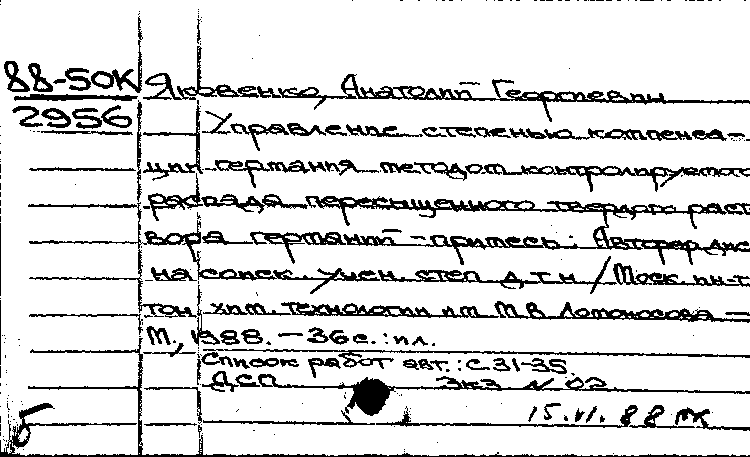 88-50К Яковенко, Анатолий Георгиевич
2956 Управление степенью компенса-
ции германия методом контролируемого
распада пересыщенного твердого раст
вора германий - примесь : Автореф дис
на соиск. учен. степ д. т. н / Моск. ин-т
тон хим. технологии им М В Ломоносова —
М., 1988. — 36 с. : ил.
Список работ авт. : с. 31-35.
ДСП Экз N 02
15.VI. 88
б